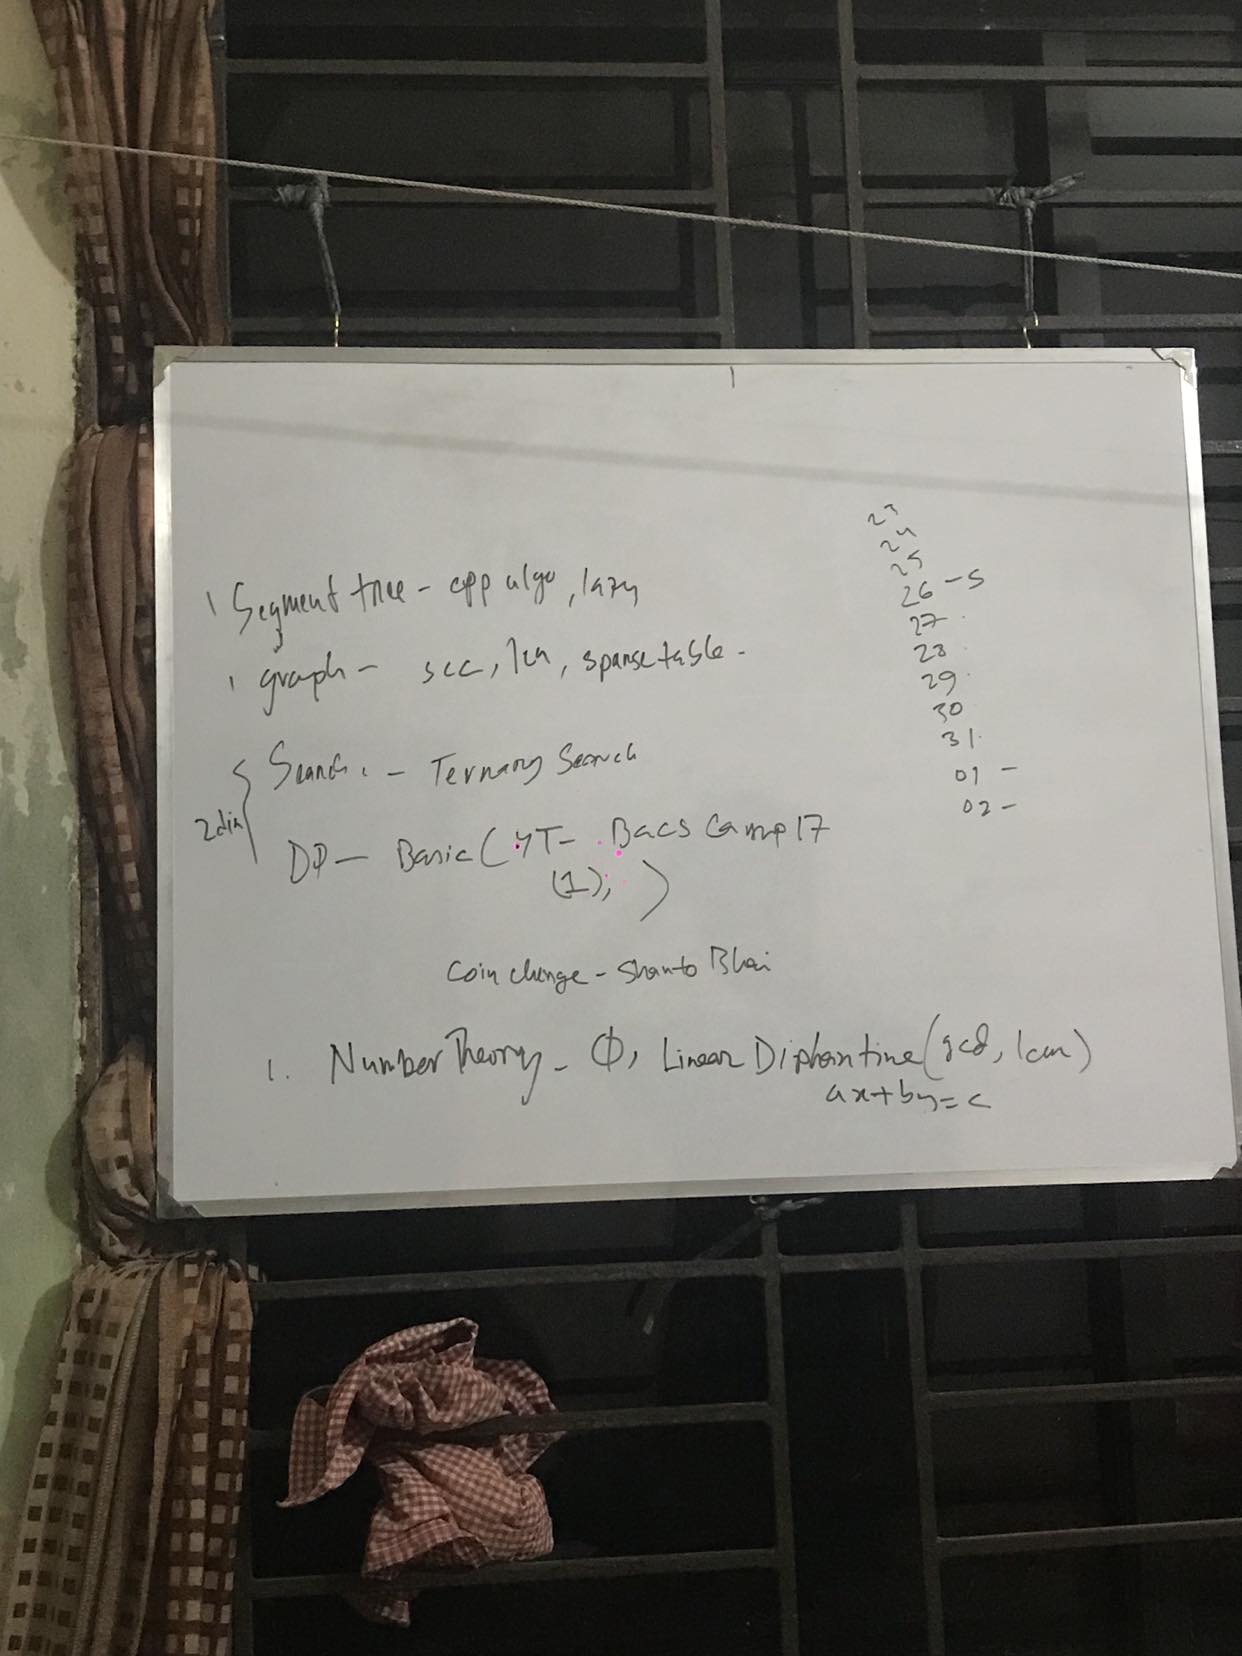 1 Segment tree - cpp algo, lazy
1 graph - scc, lca, sparse table -
Search - Ternary Search
2din
DP - Basic (YT - Bacs Camp 17
(1), )
Coin change - Shanto Bhai
1. Number Theory - Φ, Linear Diphantine (gcd, lcm)
ax+by=c
23
24
25
26 - 5
27
28
29
30
31
01 -
02 -